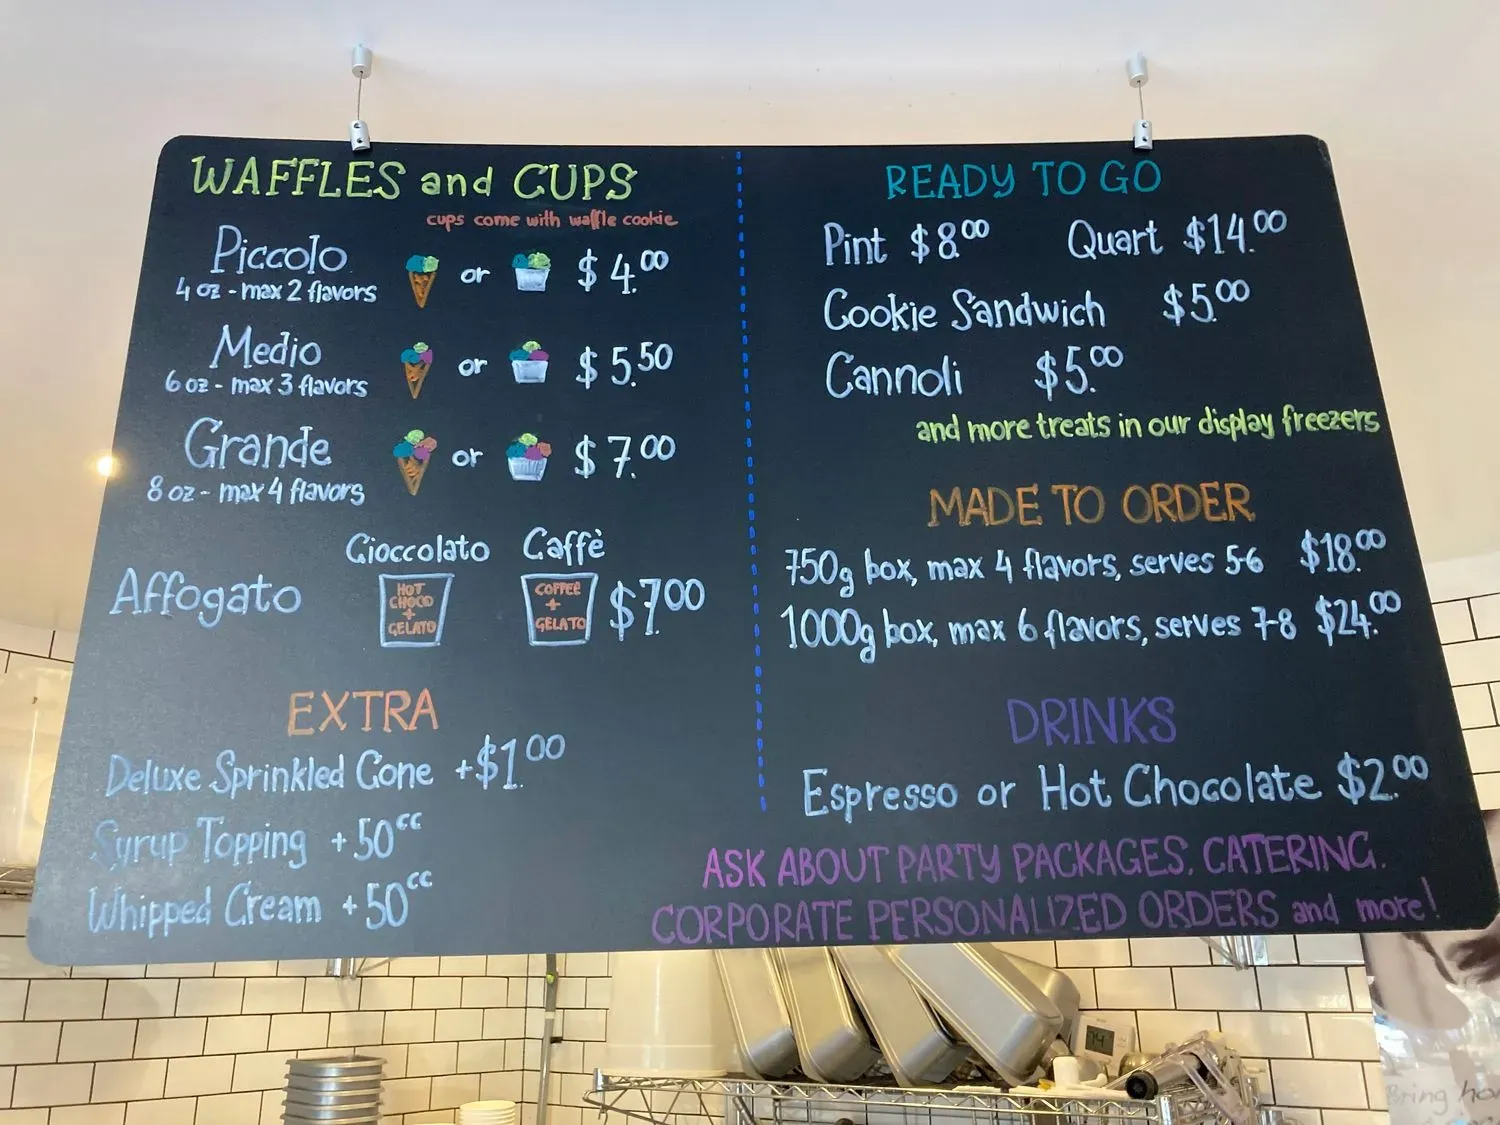 WAFFLES and CUPS
cups come with waffle cookie
Piccolo or $4.00
4 oz - max 2 flavors
Medio or $5.50
6 oz - max 3 flavors
Grande or $7.00
8 oz - max 4 flavors
Gioccolato Caffè
Affogato HOT CHOCO + GELATO COFFEE + GELATO $7.00
EXTRA
Deluxe Sprinkled Cone +$1.00
Syrup Topping +50cc
Whipped Cream +50cc
READY TO GO
Pint $8.00 Quart $14.00
Cookie Sandwich $5.00
Cannoli $5.00
and more treats in our display freezers
MADE TO ORDER
750g box, max 4 flavors, serves 5-6 $18.00
1000g box, max 6 flavors, serves 7-8 $24.00
DRINKS
Espresso or Hot Chocolate $2.00
ASK ABOUT PARTY PACKAGES, CATERING,
CORPORATE PERSONALIZED ORDERS and more!